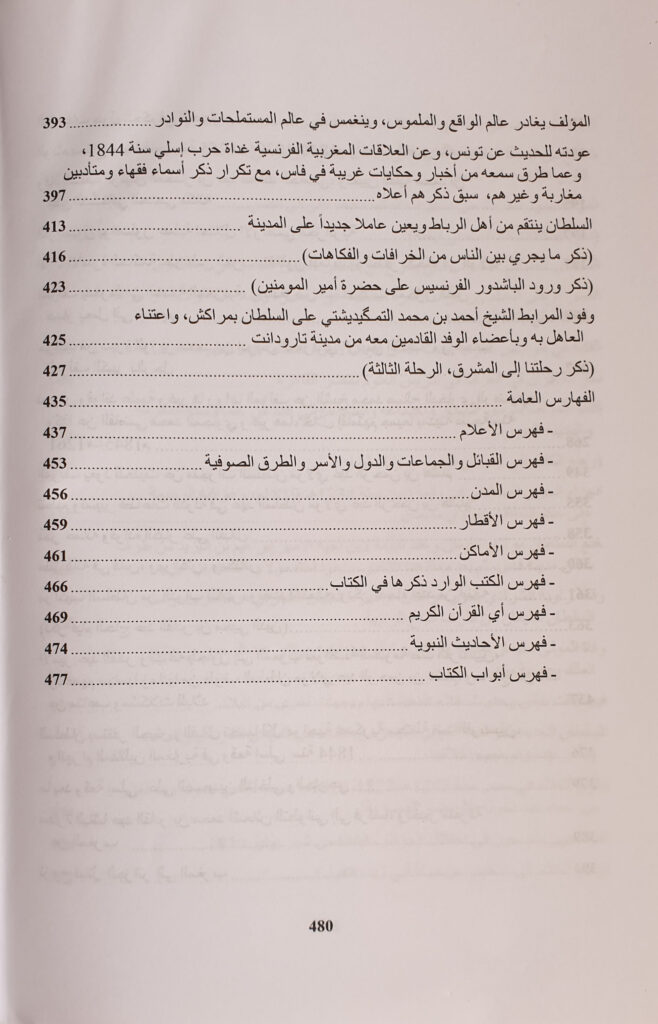 المؤلف يغادر عالم الواقع والملموس، وينغمس في عالم المستملحات والنوادر .................... 393
عودته للحديث عن تونس، وعن العلاقات المغربية الفرنسية غداة حرب إسلي سنة 1844،
وعما طرق سمعه من أخبار وحكايات غريبة في فاس، مع تكرار ذكر أسماء فقهاء ومتأدبين
مغاربة وغيرهم، سبق ذكرهم أعلاه .................... 397
السلطان ينتقم من أهل الرباط ويعين عاملا جديداً على المدينة .................... 413
(ذكر ما يجري بين الناس من الخرافات والفكاهات) .................... 416
(ذكر ورود الباشدور الفرنسيس على حضرة أمير المومنين) .................... 423
وفود المرابط الشيخ أحمد بن محمد التمـگيديشتي على السلطان بمراكش، واعتناء
العاهل به وبأعضاء الوفد القادمين معه من مدينة تارودانت .................... 425
(ذكر رحلتنا إلى المشرق، الرحلة الثالثة) .................... 427
الفهارس العامة .................... 435
- فهرس الأعلام .................... 437
- فهرس القبائل والجماعات والدول والأسر والطرق الصوفية .................... 453
- فهرس المدن .................... 456
- فهرس الأقطار .................... 459
- فهرس الأماكن .................... 461
- فهرس الكتب الوارد ذكرها في الكتاب .................... 466
- فهرس أي القرآن الكريم .................... 469
- فهرس الأحاديث النبوية .................... 474
- فهرس أبواب الكتاب .................... 477
480